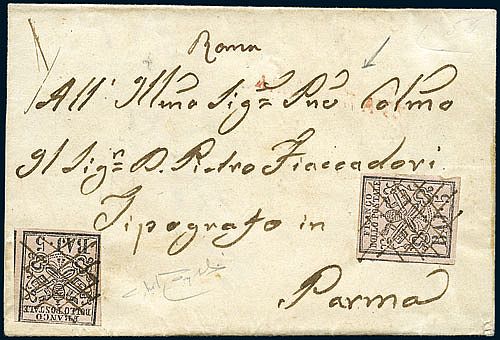 Roma
All' Illmo Sigr Pne Colmo
Il Sigr D. Pietro Fiaccadori
Tipografo in
Parma
FRANCO
BOLLO POSTALE
BAJ 5
FRANCO
BOLLO POSTALE
BAJ 5